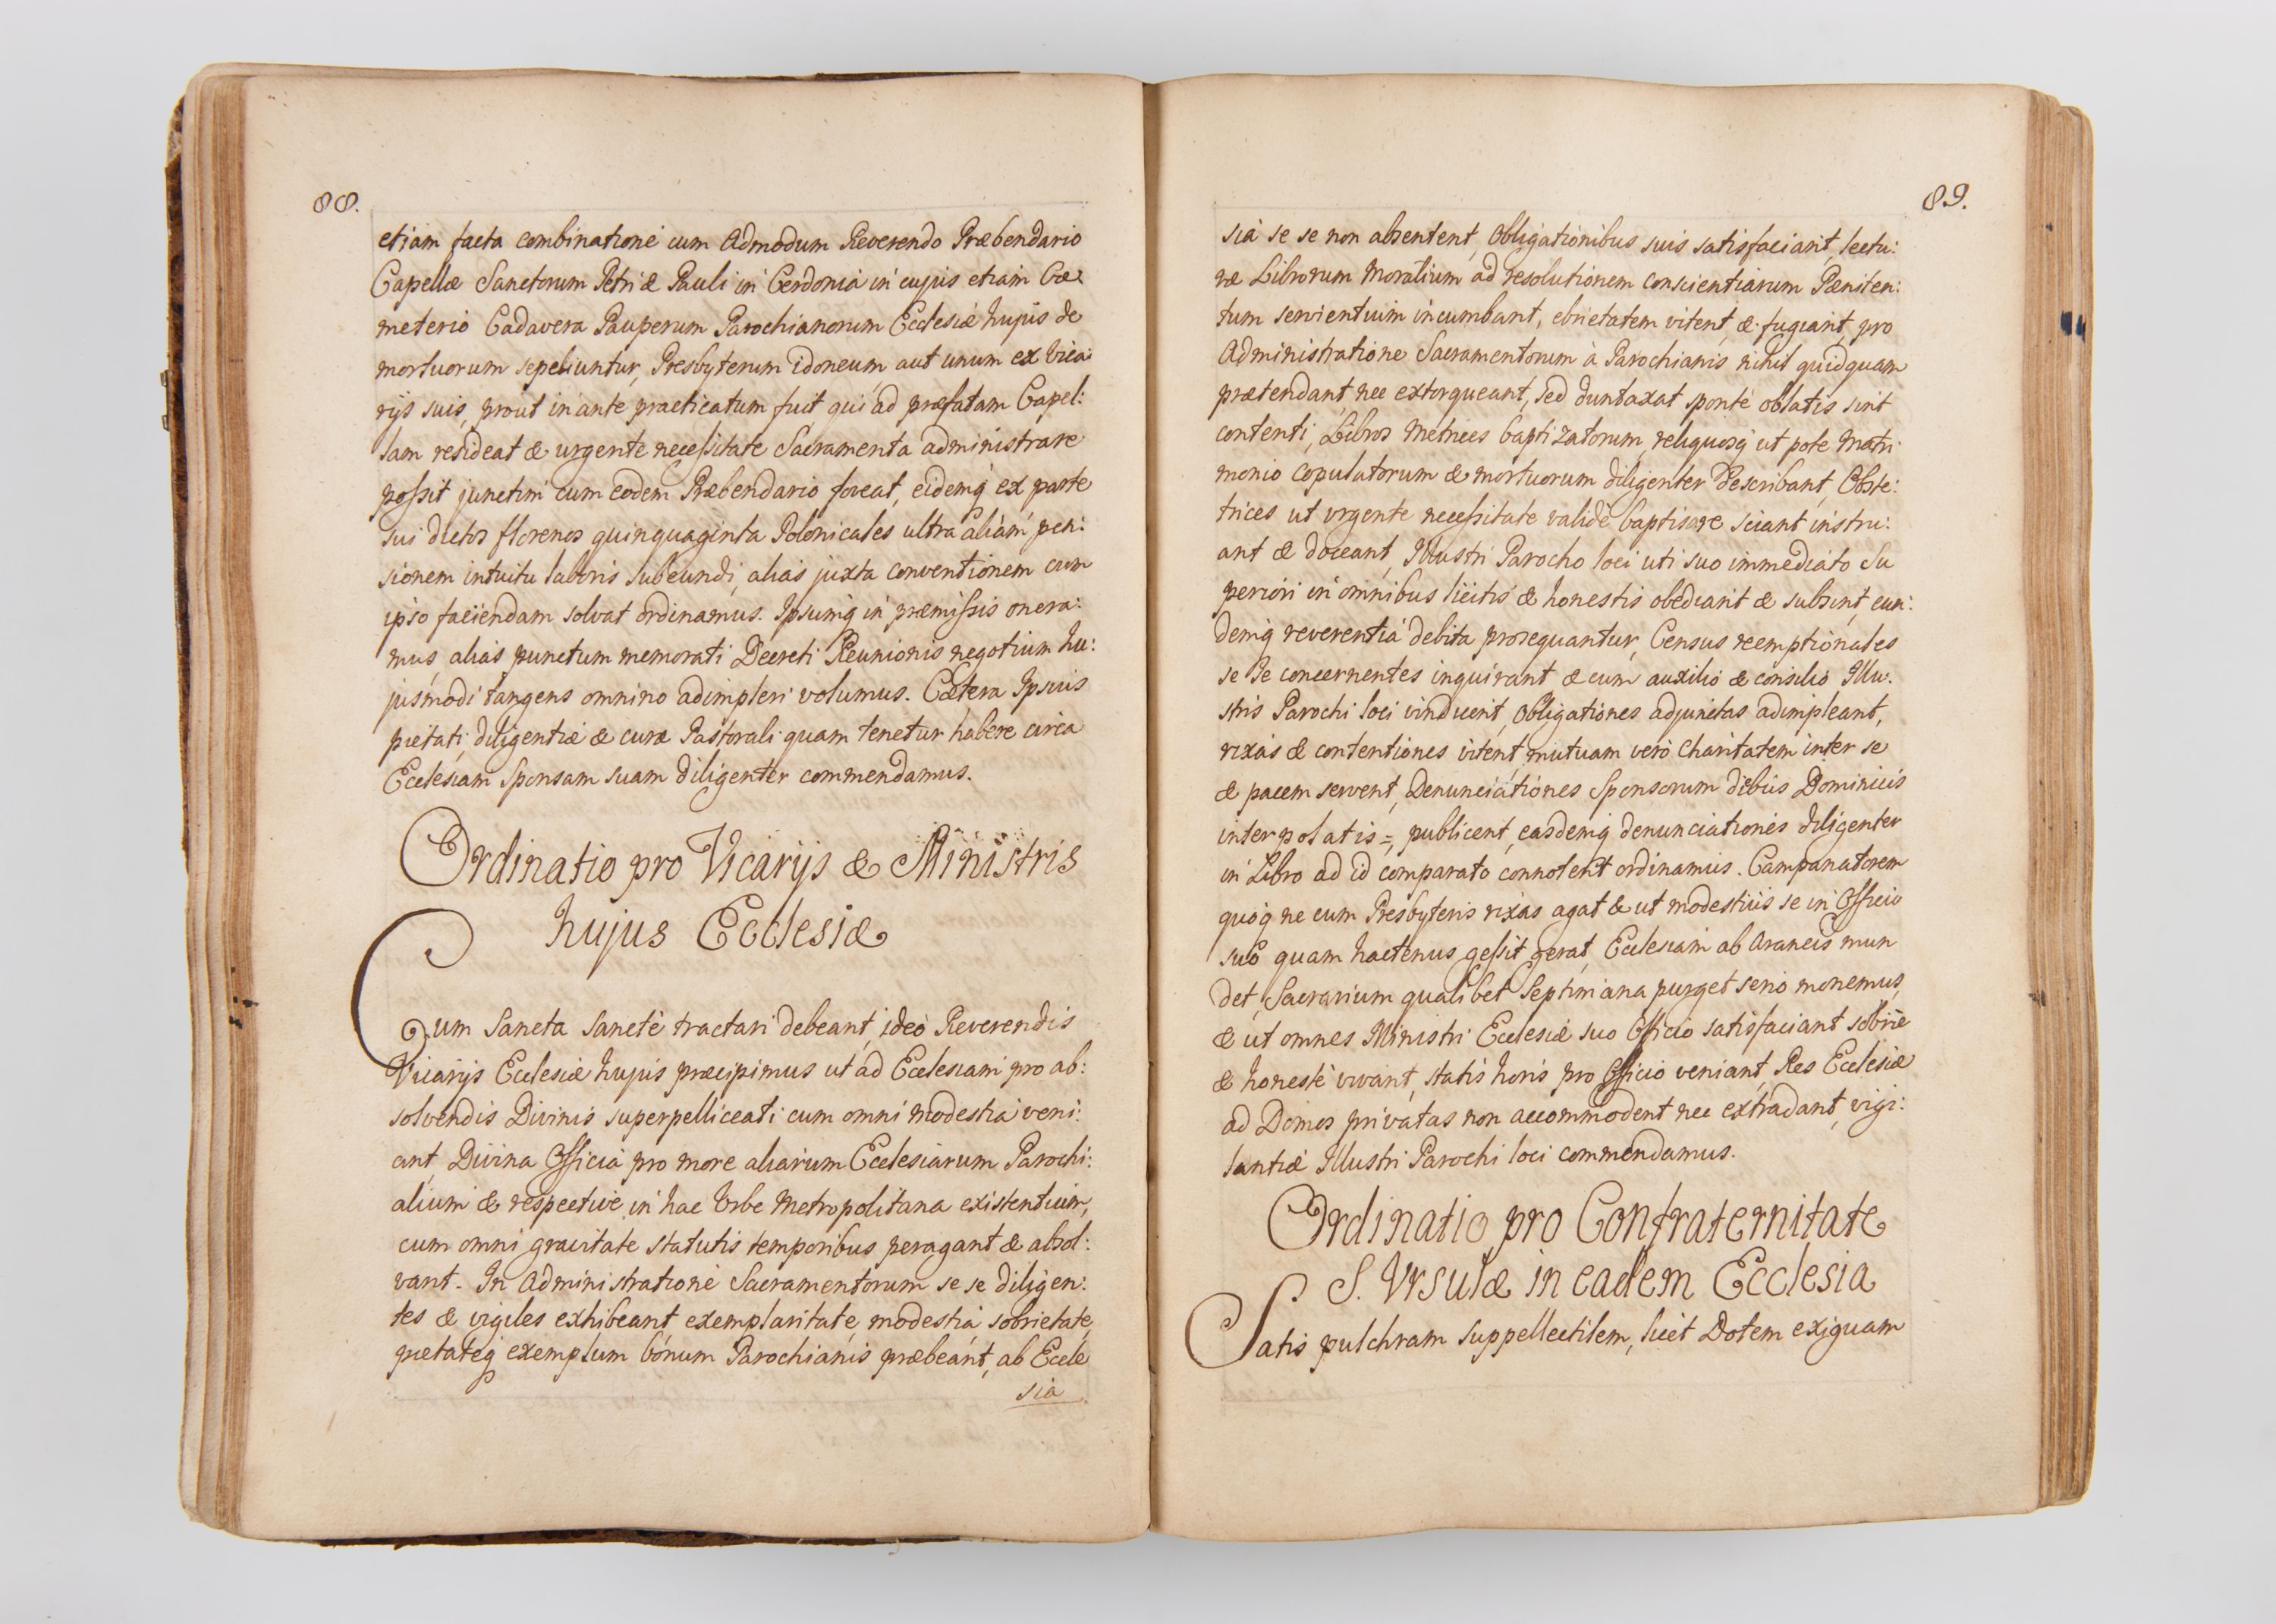 88.
etiam facta combinatione cum Admodum Reverendo Præbendario
Capellæ Sanctorum Petri & Pauli in Cerdonia in cujus etiam Cæ:
meterio Cadavera Pauperum Parochianorum Ecclesiæ hujus de
mortuorum sepeliuntur, Presbyterum idoneum aut unum ex Vica:
rijs suis, prout in ante practicatum fuit qui ad præfatam Capel:
lam resideat & urgente necessitate Sacramenta administrare
possit junctim cum eodem Præbendario foveat, eidemq ex parte
sui dictos florenos quinquaginta Polonicales ultra aliam pen:
sionem intuitu laboris subeundi, alias juxta conventionem cum
ipso faciendam solvat ordinamus. Ipsumq in præmissis onera:
mus, alias punctum memorati Decreti Reunionis negotium hu:
jusmodi tangens omnino adimpleri volumus. Cætera Ipsius
pietati, diligentiæ & curæ Pastorali quam tenetur habere circa
Ecclesiam Sponsam suam diligenter commendamus.
Ordinatio pro Vicarijs & Ministris
hujus Ecclesiæ
Cum Sancta Sanctè tractari debeant, ideò Reverendis
Vicarijs Ecclesiæ hujus præcipimus ut ad Ecclesiam pro ab:
solvendis Divinis superpelliceati cum omni modestia veni:
ant, Divina Officia pro more aliarum Ecclesiarum Parochi:
alium & respective in hac Urbe Metropolitana existentium,
cum omni gravitate statutis temporibus peragant & absol:
vant. In Administratione Sacramentorum se se diligen:
tes & vigiles exhibeant exemplaritate, modestia, sobrietate,
pietateq exemplum bonum Parochianis præbeant, ab Eccle
sia
89.
sia se se non absentent, Obligationibus suis satisfaciant, lectu:
ræ Librorum Moralium ad resolutionem conscientiarum Pæniten:
tum servientium incumbant, ebrietatem vitent, & fugiant, pro
Administratione Sacramentorum à Parochianis nihil quidquam
prætendant, nec extorqueant, sed duntaxat sponte oblatis sint
contenti, Libros Metrices baptizatorum, reliquosq ut pote Matri
monio copulatorum & mortuorum diligenter describant, Obste:
trices ut urgente necessitate validè baptisare sciant instru:
ant & doceant, Illustri Parocho loci uti suo immediato Su
periori in omnibus licitis & honestis obediant & subsint, eun:
demq reverentia debita prosequantur, Census reemptionales
se se concernentes inquirant & cum auxilio & consilio Illu:
stris Parochi loci vindicent, Obligationes adjunctas adimpleant,
rixas & contentiones vitent, mutuam verò Charitatem inter se
& pacem servent, Denunciationes Sponsorum diebus Dominicis
interpolatis =, publicent, easdemq denunciationes diligenter
in Libro ad id comparato connotent ordinamus. Campanatorem
quoq ne cum Presbyteris rixas agat & ut modestius se in Officio
suo quam hactenus gessit gerat, Ecclesiam ab Araneis mun
det, Sacrarium qualibet Septimana purget serio monemus,
& ut omnes Ministri Ecclesiæ suo Officio satisfaciant sobriè
& honestè vivant, statis horis pro Officio veniant, Res Ecclesiæ
ad Domos privatas non accommodent nec extradant, vigi:
lantiæ Illustri Parochi loci commendamus.
Ordinatio pro Confraternitate
S. Ursulæ in eadem Ecclesia
Satis pulchram suppellectilem, licet Dotem exiguam